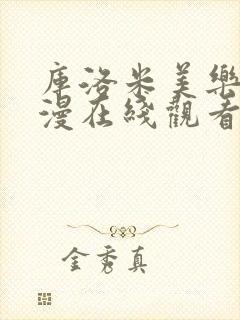 库洛米美樂
漫在綫觀看
金秀真